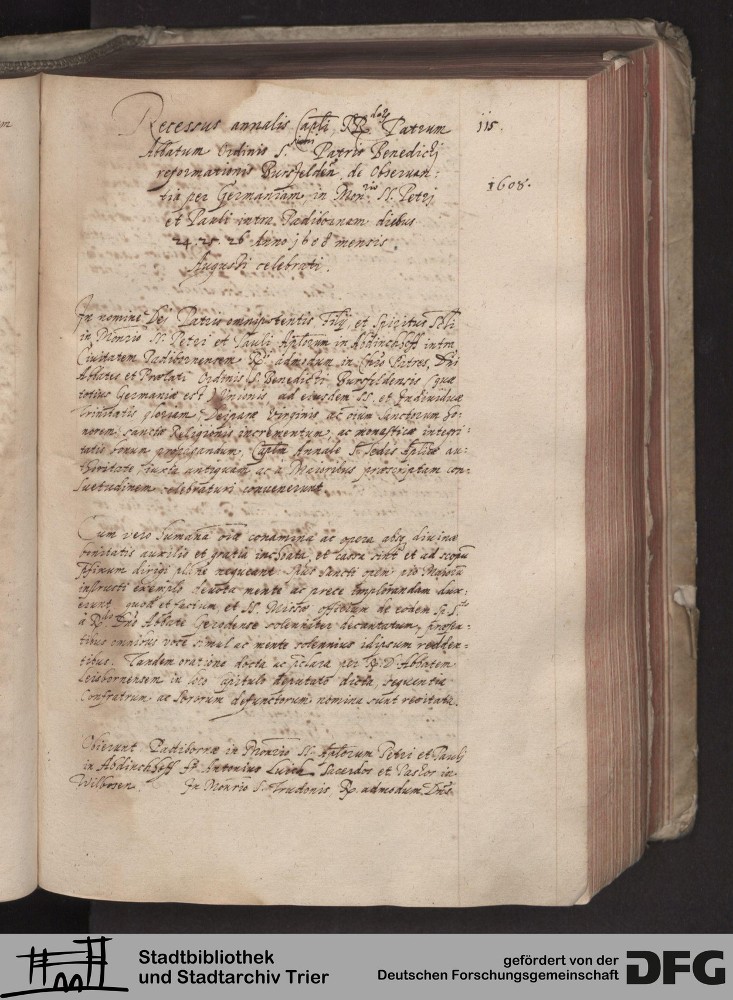 Recessus annalis Capli RR.dor Patrum
Abbatum Ordinis S.ti Patris Benedicti
reformationis Bursfelden. de Obseruan:
tia per Germaniam in Mon.rio SS. Petri
et Pauli intra Padibornam diebus
24. 25. 26 Anno 1608 mensis
Augusti celebrati.
115.
1608.
In nomine Dei Patris omnipotentis, Filij et Spiritus Scti
in Monrio SS. Petri et Pauli Aptorum in Abdinckhoff intra
Ciuitatem Padibornensem RR. admodum in Chro Patres, Dni
Abbates et Praelati Ordinis S. Benedicti Bursfeldensis (quae
totius Germaniae est) Unionis ad eiusdem SS. et Indiuiduae
Trinitatis gloriam, Deiparae Virginis, ac ciuium Sanctorum ho:
norem, sanctae Religionis incrementum, ac monasticae integri:
tatis bonum Caplm Annale S. Sedis Aplicae au:
thoritate iuxta antiquam ac a Maioribus praescriptam con:
suetudinem celebraturi conuenerunt.
Cum vero humana oia conamina ac opera absq. diuinae
bonitatis auxilio et gratia inchoata, et cassa sint et ad scopum
dirigi nequeant: Sancti opem pro Maiorum
instructi exemplo deuota mente ac prece implorandam dux:
erunt, quod et factum, et SS. Missae officium de eodem Sp. S.to
a R.do Dno Abbate Gerodense solenniter decantatum, praesen:
tibus omnibus voce simul ac mente solennius idipsum redden:
tibus. Tandem oratione docta ac pclara per R. D. Abbatem
Leisbornensem in loco Capitulo deputato dicta, sequentia
Confratrum ac Sororum defunctorum nomina sunt recitata.
Obierunt Padibornae in Monrio SS. Aptorum Petri et Pauli
in Abdinckhoff Fr. Antonius Sacerdos et Pastor in
Wilbosen. In Monrio S. Trudonis, R. admodum Dns
Stadtbibliothek
und Stadtarchiv Trier
gefördert von der
Deutschen Forschungsgemeinschaft
DFG